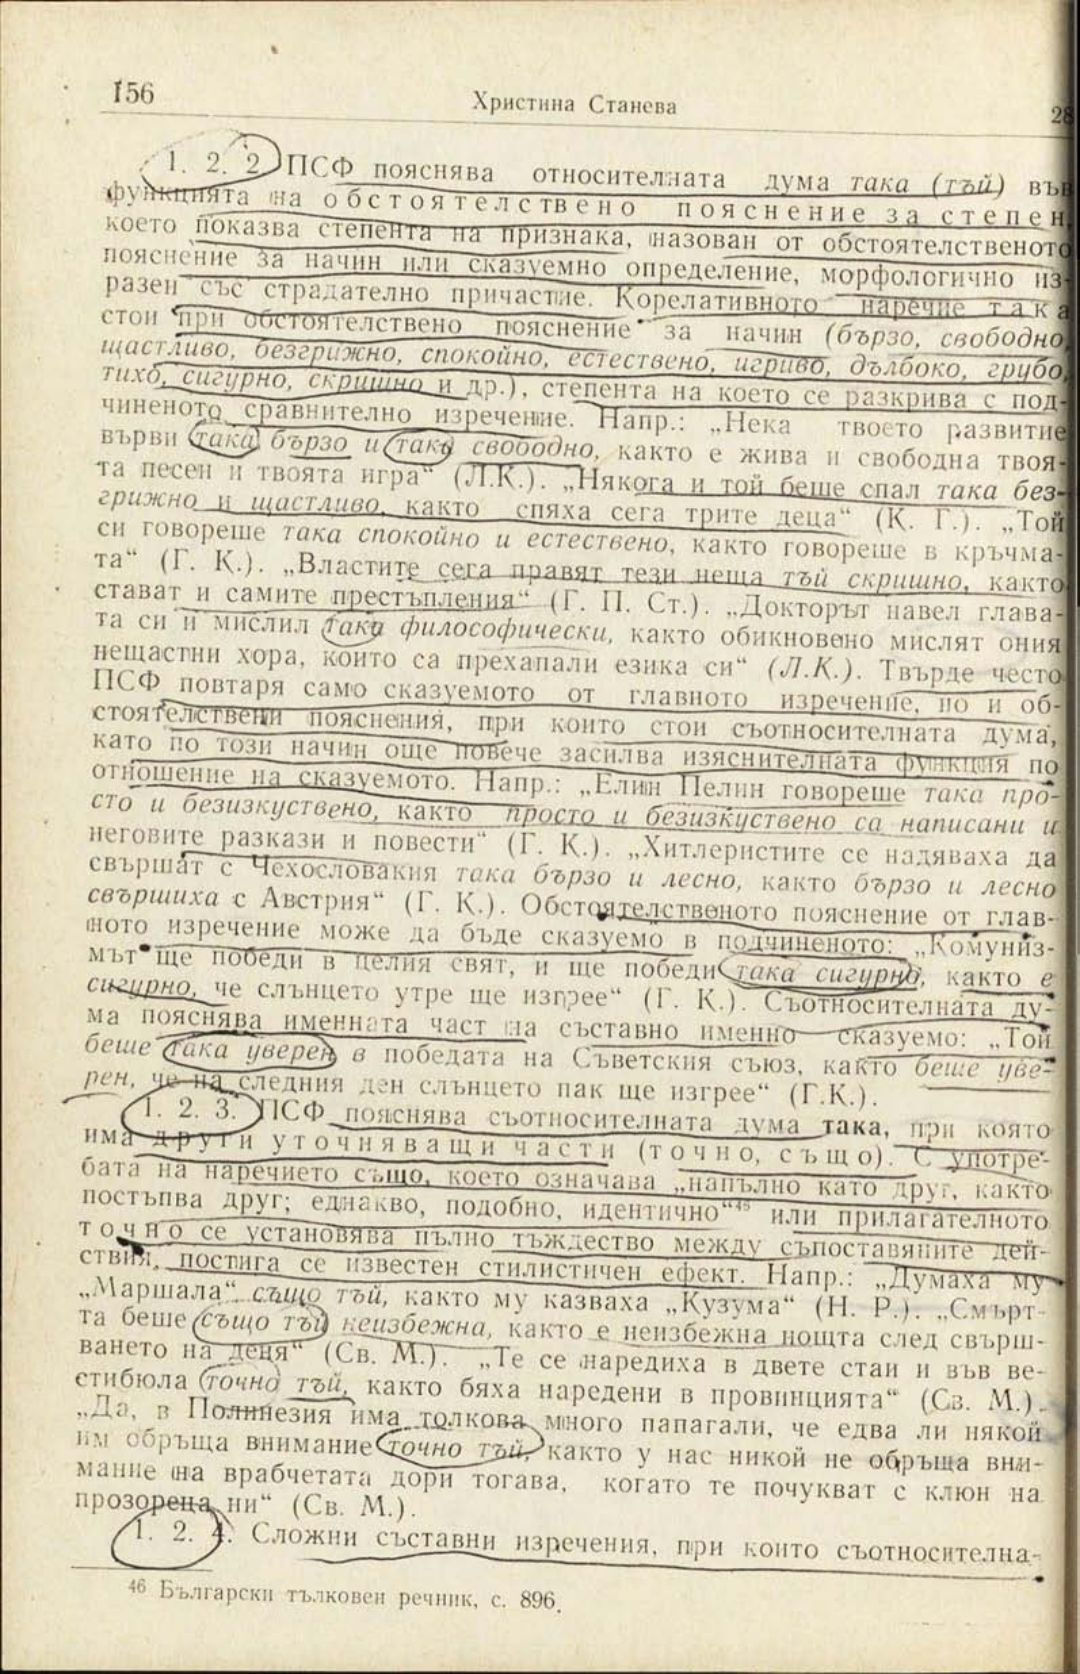 156
Христина Станева
28
1. 2. 2 ПСФ пояснява относителната дума така (тъй) във
функцията на обстоятелствено пояснение за степен,
което показва степента на признака, назован от обстоятелственото
пояснение за начин или сказуемно определение, морфологично из-
разен със страдателно причастие. Корелативното наречие така
стои при обстоятелствено пояснение за начин (бързо, свободно,
щастливо, безгрижно, спокойно, естествено, игриво, дълбоко, грубо,
тихо, сигурно, скришно и др.), степента на което се разкрива с под-
чиненото сравнително изречение. Напр.: „Нека твоето развитие
върви така бързо и така свободно, както е жива и свободна твоя-
та песен и твоята игра“ (Л.К.). „Някога и той беше спал така без-
грижно и щастливо, както спяха сега трите деца“ (К. Г.). „Той
си говореше така спокойно и естествено, както говореше в кръчма-
та“ (Г. К.). „Властите сега правят тези неща тъй скришно, както
стават и самите престъпления“ (Г. П. Ст.). „Докторът навел глава-
та си и мислил така философически, както обикновено мислят ония
нещастни хора, които са прехапали езика си“ (Л.К.). Твърде често
ПСФ повтаря само сказуемото от главното изречение, но и об-
стоятелствени пояснения, при които стои съотносителната дума,
като по този начин още повече засилва изяснителната функция по
отношение на сказуемото. Напр.: „Елин Пелин говореше така про-
сто и безизкуствено, както просто и безизкуствено са написани и
неговите разкази и повести“ (Г. К.). „Хитлеристите се надяваха да
свършат с Чехословакия така бързо и лесно, както бързо и лесно
свършиха с Австрия“ (Г. К.). Обстоятелственото пояснение от глав-
ното изречение може да бъде сказуемо в подчиненото: „Комуниз-
мът ще победи в целия свят, и ще победи така сигурно, както е
сигурно, че слънцето утре ще изгрее“ (Г. К.). Съотносителната ду-
ма пояснява именната част на съставно именно сказуемо: „Той
беше така уверен в победата на Съветския съюз, както беше уве-
рен, че на следния ден слънцето пак ще изгрее“ (Г.К.).
1. 2. 3. ПСФ пояснява съотносителната дума така, при която
има други уточняващи части (точно, също). С употре-
бата на наречието също, което означава „напълно като друг, както
постъпва друг; еднакво, подобно, идентично“⁴⁶ или прилагателното
точно се установява пълно тъждество между съпоставяните дей-
ствия, постига се известен стилистичен ефект. Напр.: „Думаха му
„Маршала“ също тъй, както му казваха „Кузума“ (Н. Р.). „Смърт-
та беше също тъй неизбежна, както е неизбежна нощта след свърш-
ването на деня“ (Св. М.). „Те се наредиха в двете стаи и във ве-
стибюла точно тъй, както бяха наредени в провинцията“ (Св. М.).
„Да, в Полинезия има толкова много папагали, че едва ли някой
им обръща внимание точно тъй, както у нас никой не обръща вни-
мание на врабчетата дори тогава, когато те почукват с клюн на
прозореца ни“ (Св. М.).
1. 2. 4. Сложни съставни изречения, при които съотносителна-
⁴⁶ Български тълковен речник, с. 896.